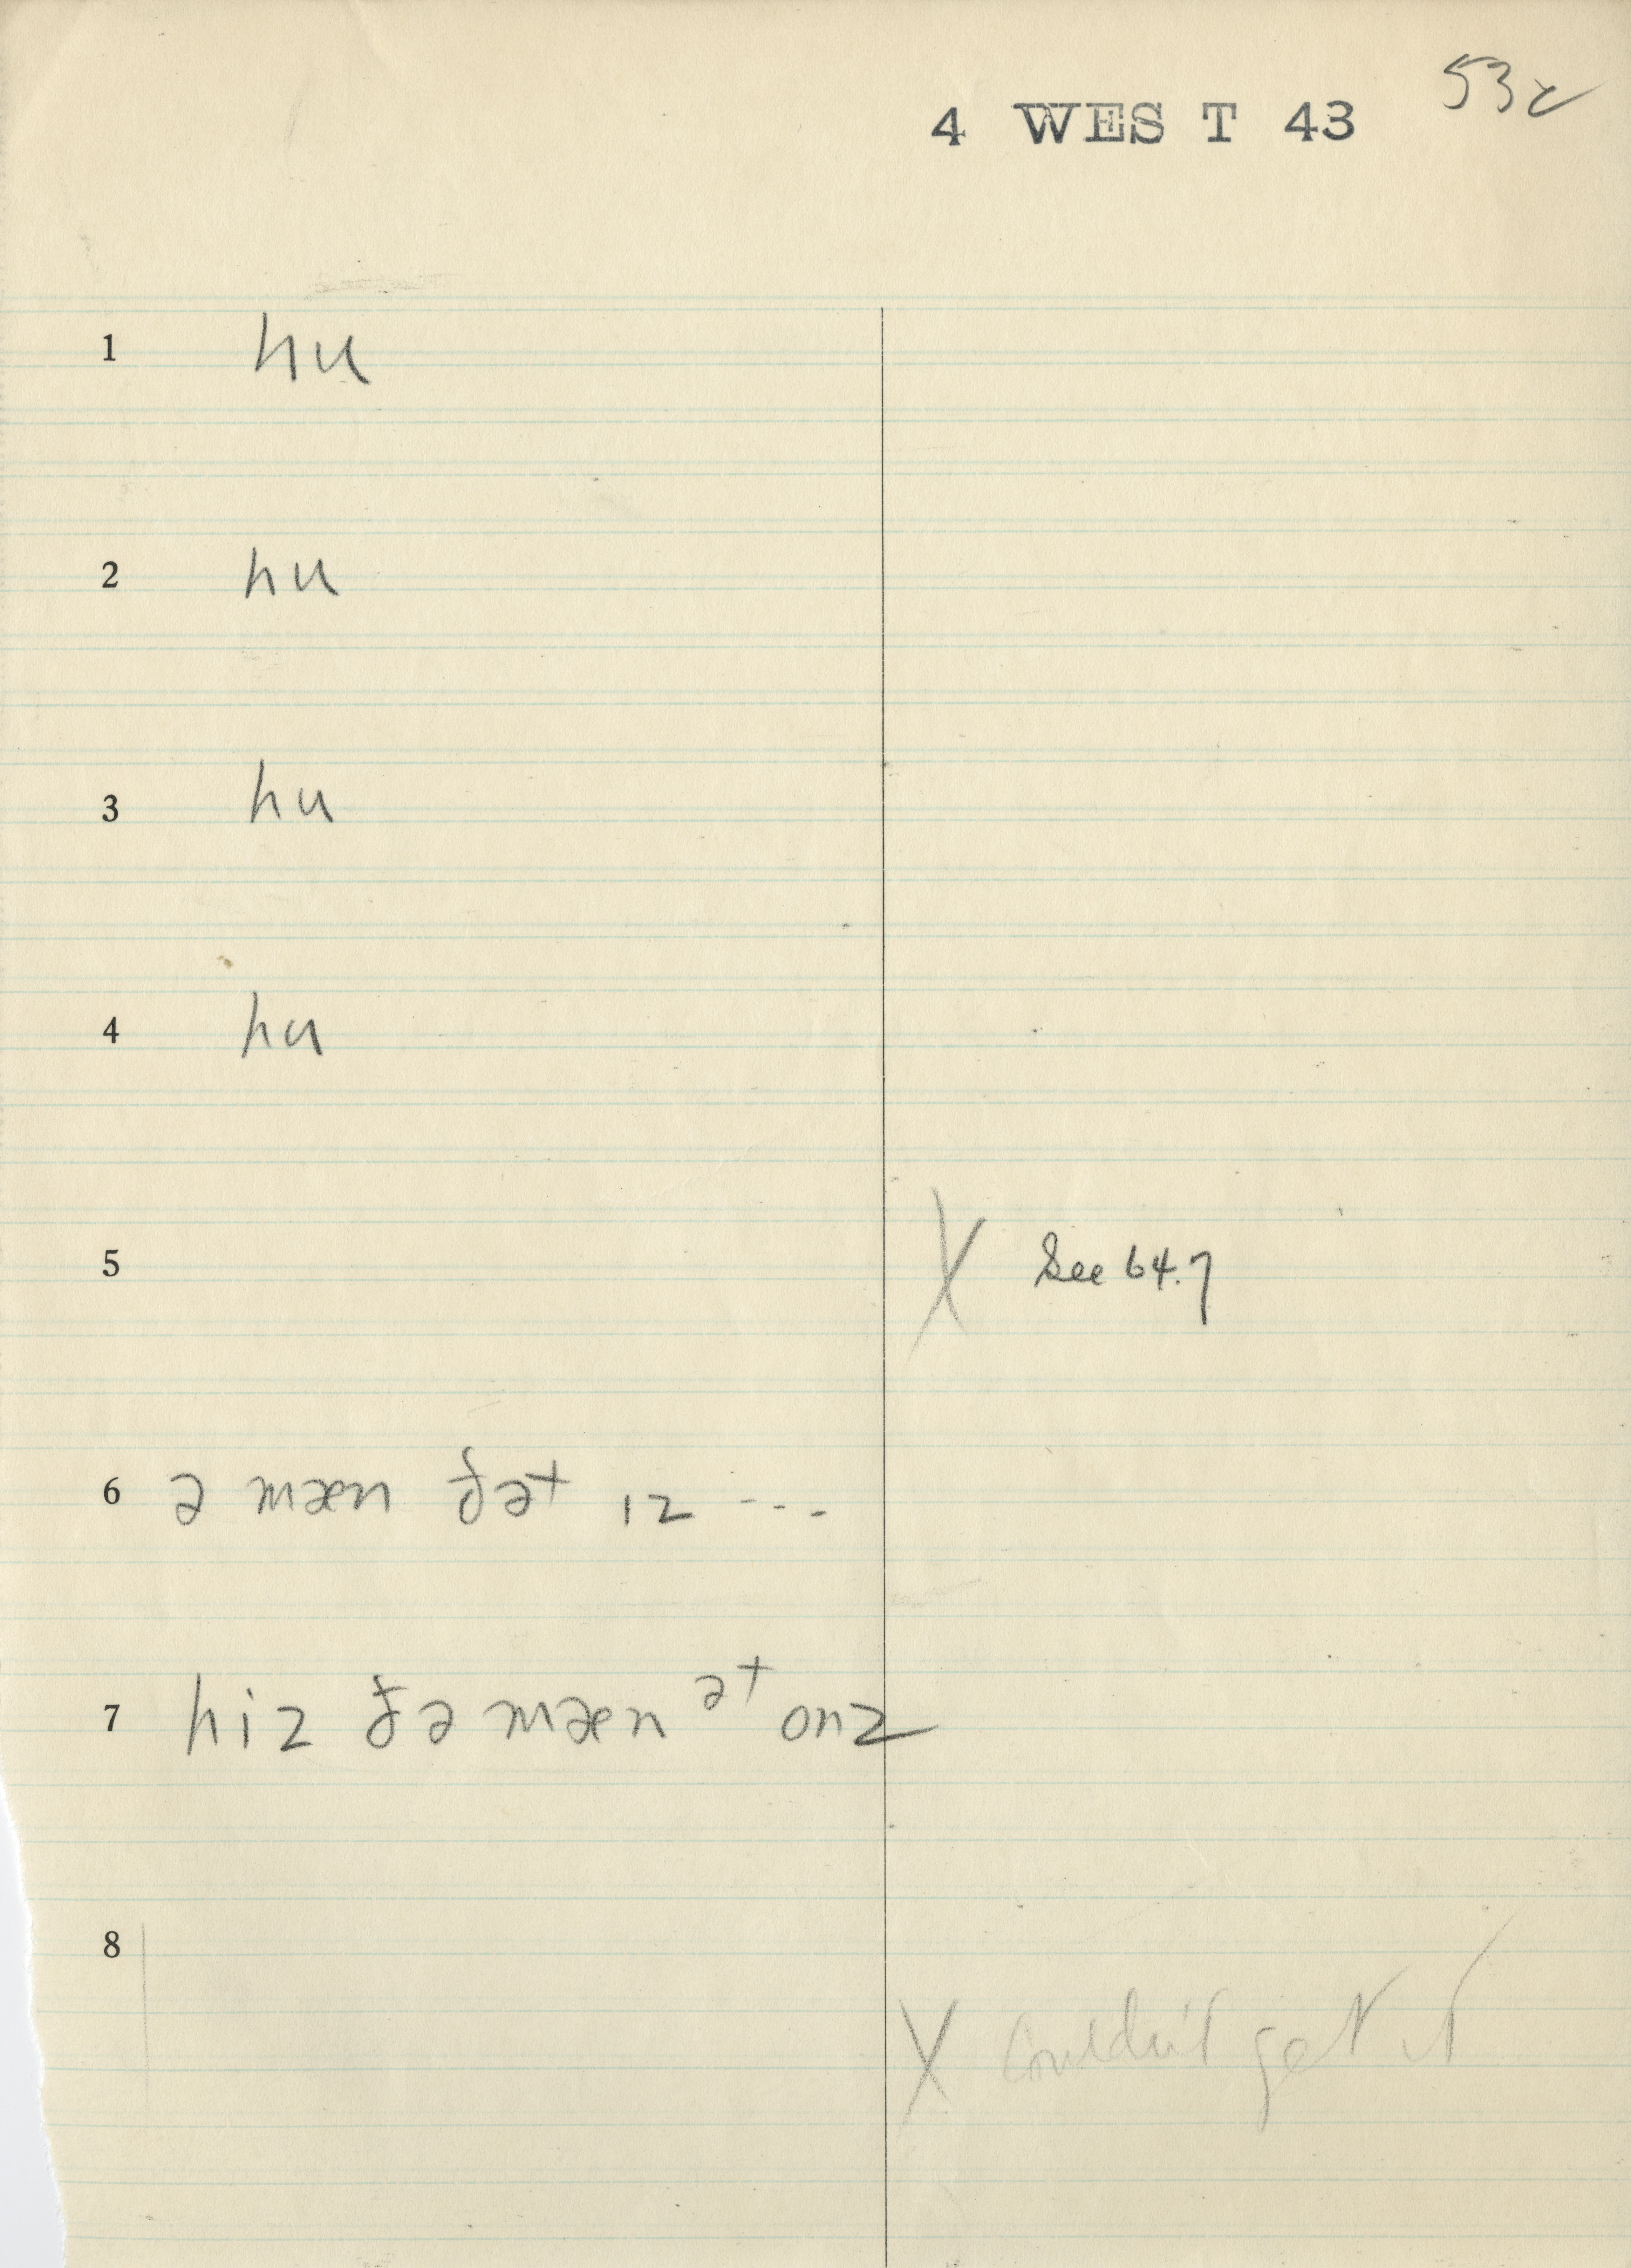 53c
4 WEST 43
1 hu
2 hu
3 hu
4 hu
5 X See 64.7
6 ə mæn ðət ɪz ---
7 hiz ðə mæn ət onz
8
X Couldn't get it